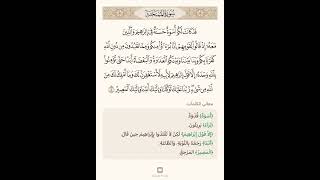 سُورَةُ المُمْتَحَنَةِ
قَدْ كَانَتْ لَكُمْ أُسْوَةٌ حَسَنَةٌ فِىٓ إِبْرَٰهِيمَ وَٱلَّذِينَ
مَعَهُۥٓ إِذْ قَالُوا۟ لِقَوْمِهِمْ إِنَّا بُرَءَٰٓؤُا۟ مِنكُمْ وَمِمَّا تَعْبُدُونَ مِن دُونِ ٱللَّهِ
كَفَرْنَا بِكُمْ وَبَدَا بَيْنَنَا وَبَيْنَكُمُ ٱلْعَدَٰوَةُ وَٱلْبَغْضَآءُ أَبَدًا حَتَّىٰ تُؤْمِنُوا۟
بِٱللَّهِ وَحْدَهُۥٓ إِلَّا قَوْلَ إِبْرَٰهِيمَ لِأَبِيهِ لَأَسْتَغْفِرَنَّ لَكَ وَمَآ أَمْلِكُ لَكَ مِنَ
ٱللَّهِ مِن شَىْءٍ رَّبَّنَا عَلَيْكَ تَوَكَّلْنَا وَإِلَيْكَ أَنَبْنَا وَإِلَيْكَ ٱلْمَصِيرُ ٤
معاني الكلمات
﴿أُسْوَةٌ﴾ قُدْوَةٌ.
﴿بُرَءَاءُ﴾ بَرِيئُونَ.
﴿إِلَّا قَوْلَ إِبْرَاهِيمَ﴾ لَكِنْ لَا تَقْتَدُوا بِإِبْرَاهِيمَ حِينَ قَالَ.
﴿أَنَبْنَا﴾ رَجَعْنَا بِالتَّوْبَةِ، وَالطَّاعَةِ.
﴿الْمَصِيرُ﴾ المَرْجِعُ.